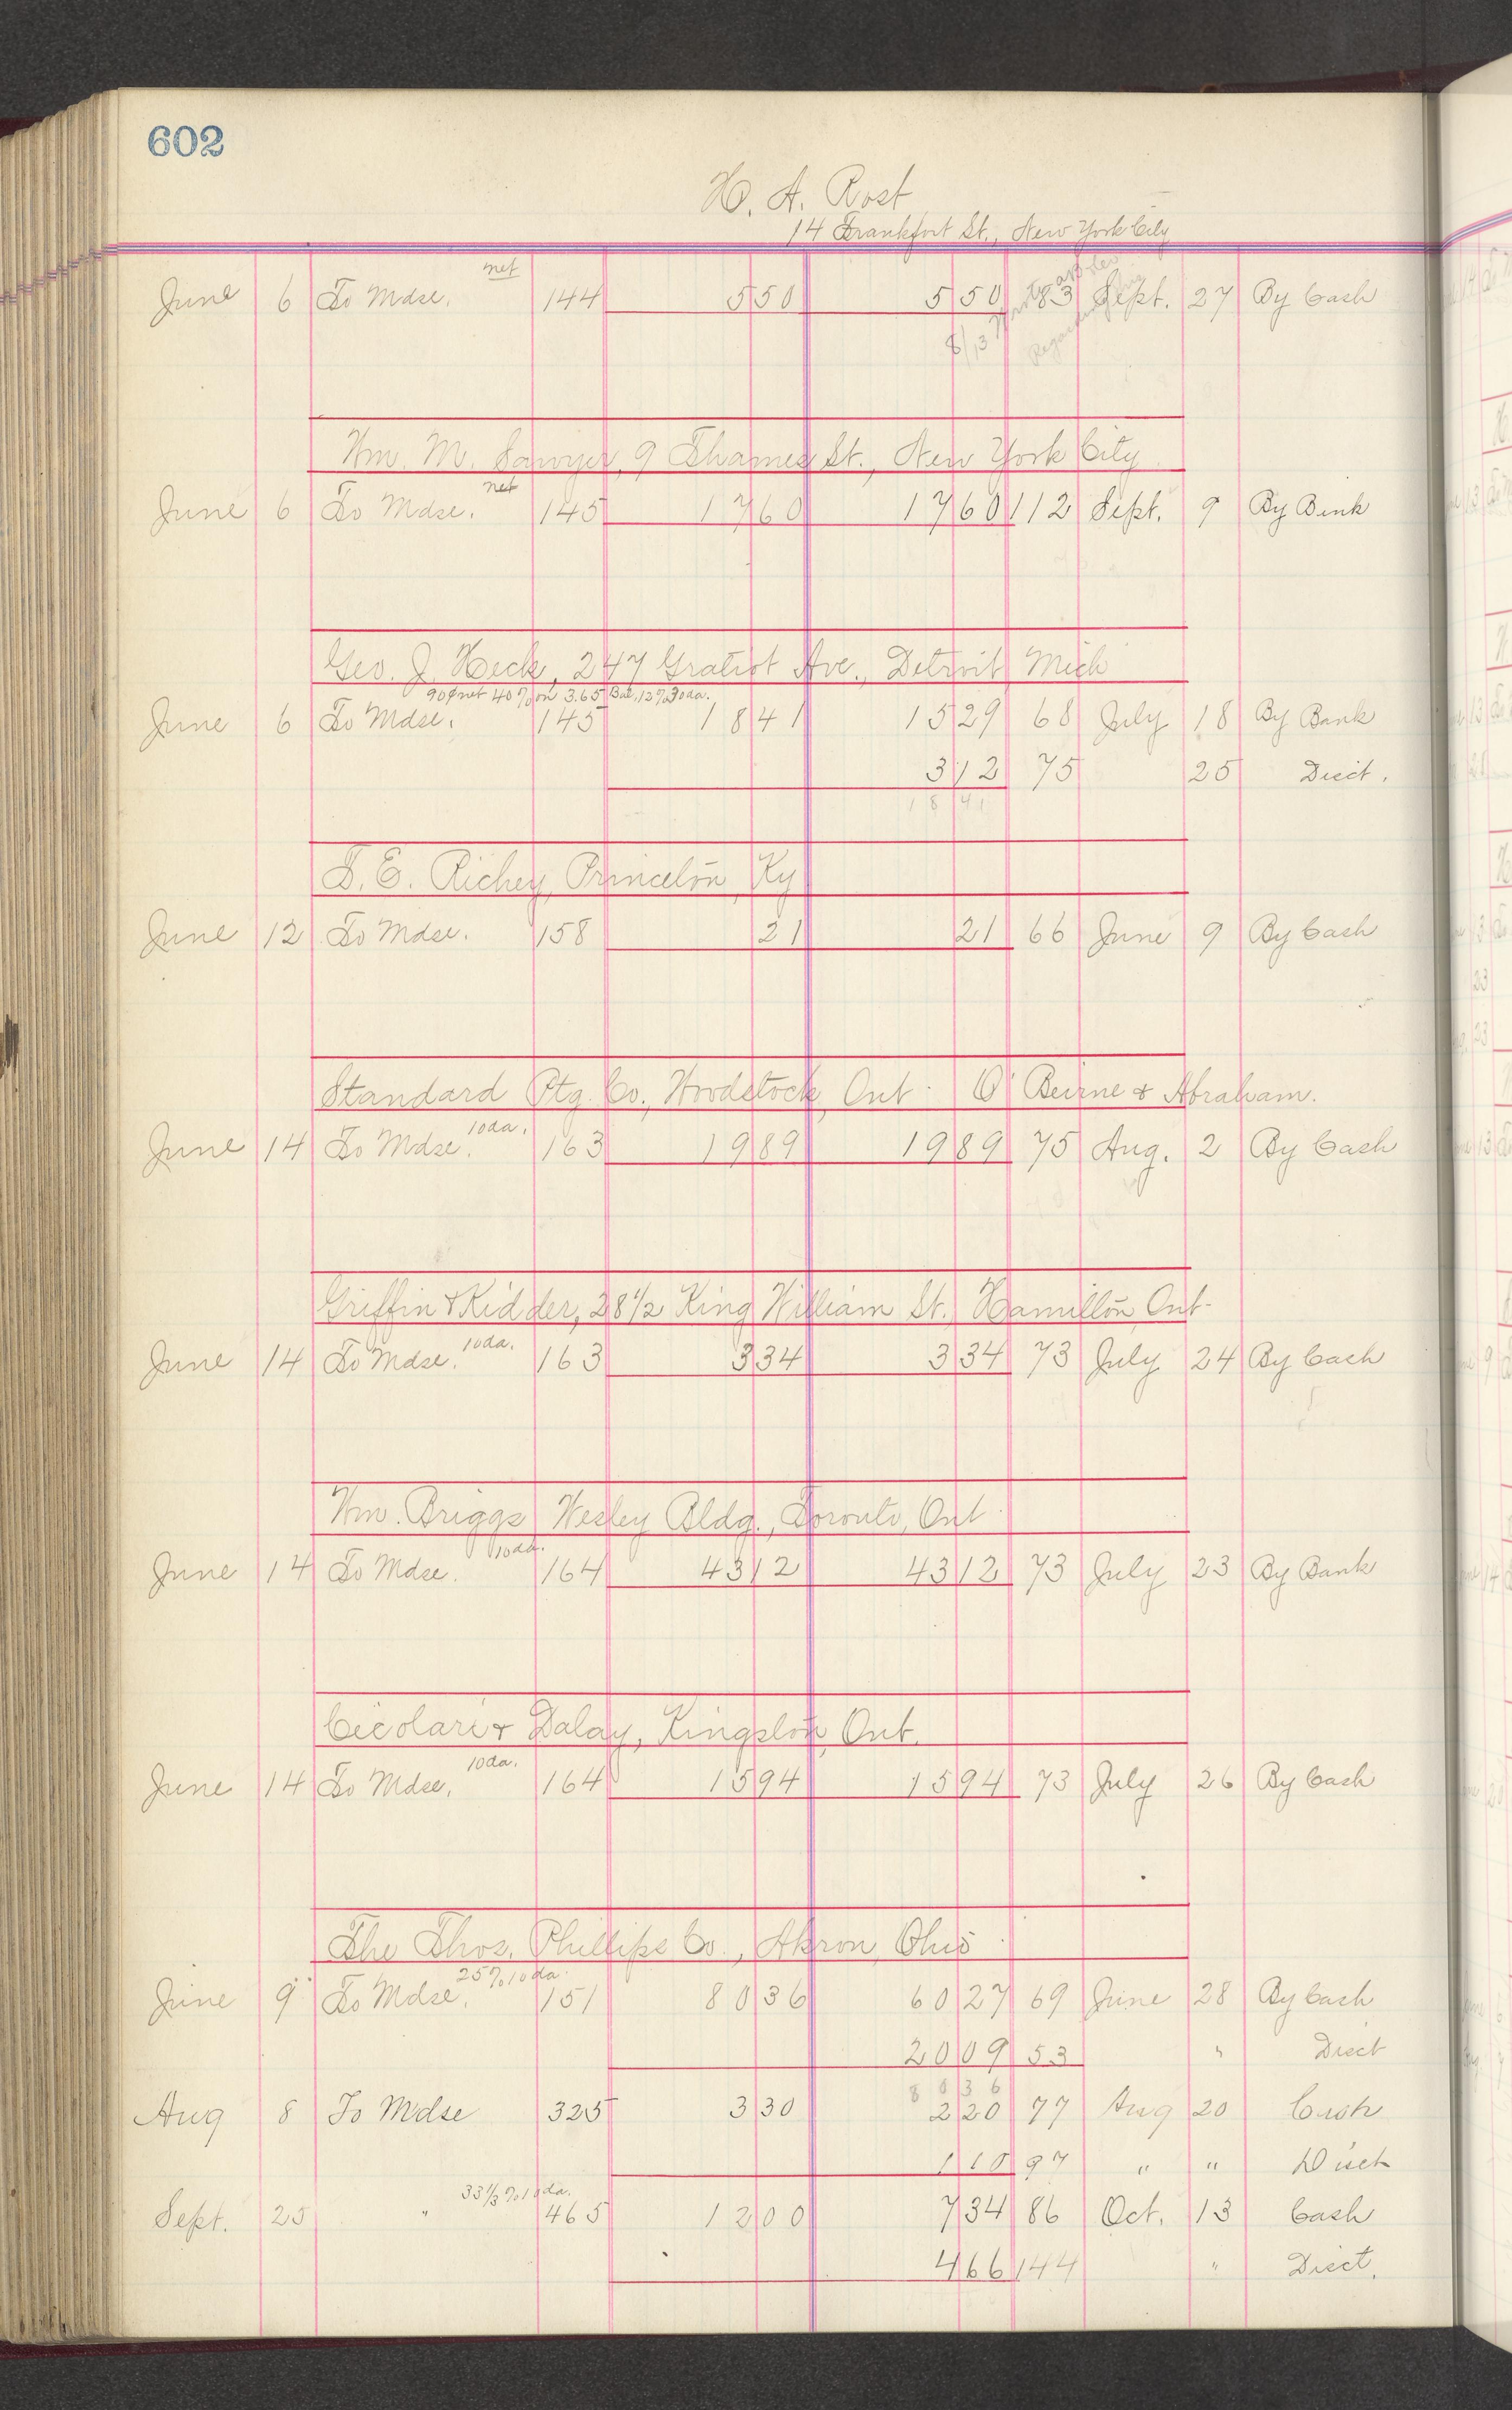 602
H. A. Rost
14 Frankfort St., New York City
net
June 6 To Mdse. 144 5 50 5 50 83 Sept. 27 By Cash
8/13
Wm. M. Sawyer, 9 Thames St., New York City
net
June 6 To Mdse. 145 17 60 17 60 112 Sept. 9 By Bink
Geo. J. Heck, 247 Gratiot Ave., Detroit Mich
90¢ net 40% on 3.65 Bal. 12% 30 da.
June 6 To Mdse. 145 18 41 15 29 68 July 18 By Bank
3 12 75 25 Disct.
18 41
T. E. Richey, Princeton, Ky
June 12 To Mdse. 158 21 21 66 June 9 By Cash
Standard Ptg. Co., Woodstock, Ont. O'Beirne & Abraham.
10 da.
June 14 To Mdse. 163 19 89 19 89 75 Aug. 2 By Cash
Griffin & Kidder, 28 1/2 King William St. Hamilton, Ont.
10 da.
June 14 To Mdse. 163 3 34 3 34 73 July 24 By Cash
Wm. Briggs, Wesley Bldg., Toronto, Ont.
10 da.
June 14 To Mdse. 164 43 12 43 12 73 July 23 By Bank
Cicolari & Dalay, Kingston, Ont.
10 da.
June 14 To Mdse. 164 15 94 15 94 73 July 26 By Cash
The Thos. Phillips Co., Akron, Ohio
25% 10 da.
June 9 To Mdse. 151 80 36 60 27 69 June 28 By Cash
20 09 53 " Disct
80 36
Aug 8 To Mdse 325 3 30 2 20 77 Aug 20 Cash
1 10 97 " " Disct
33 1/3 % 10 da.
Sept. 25 " 465 12 00 7 34 86 Oct. 13 Cash
4 66 144 " Disct.